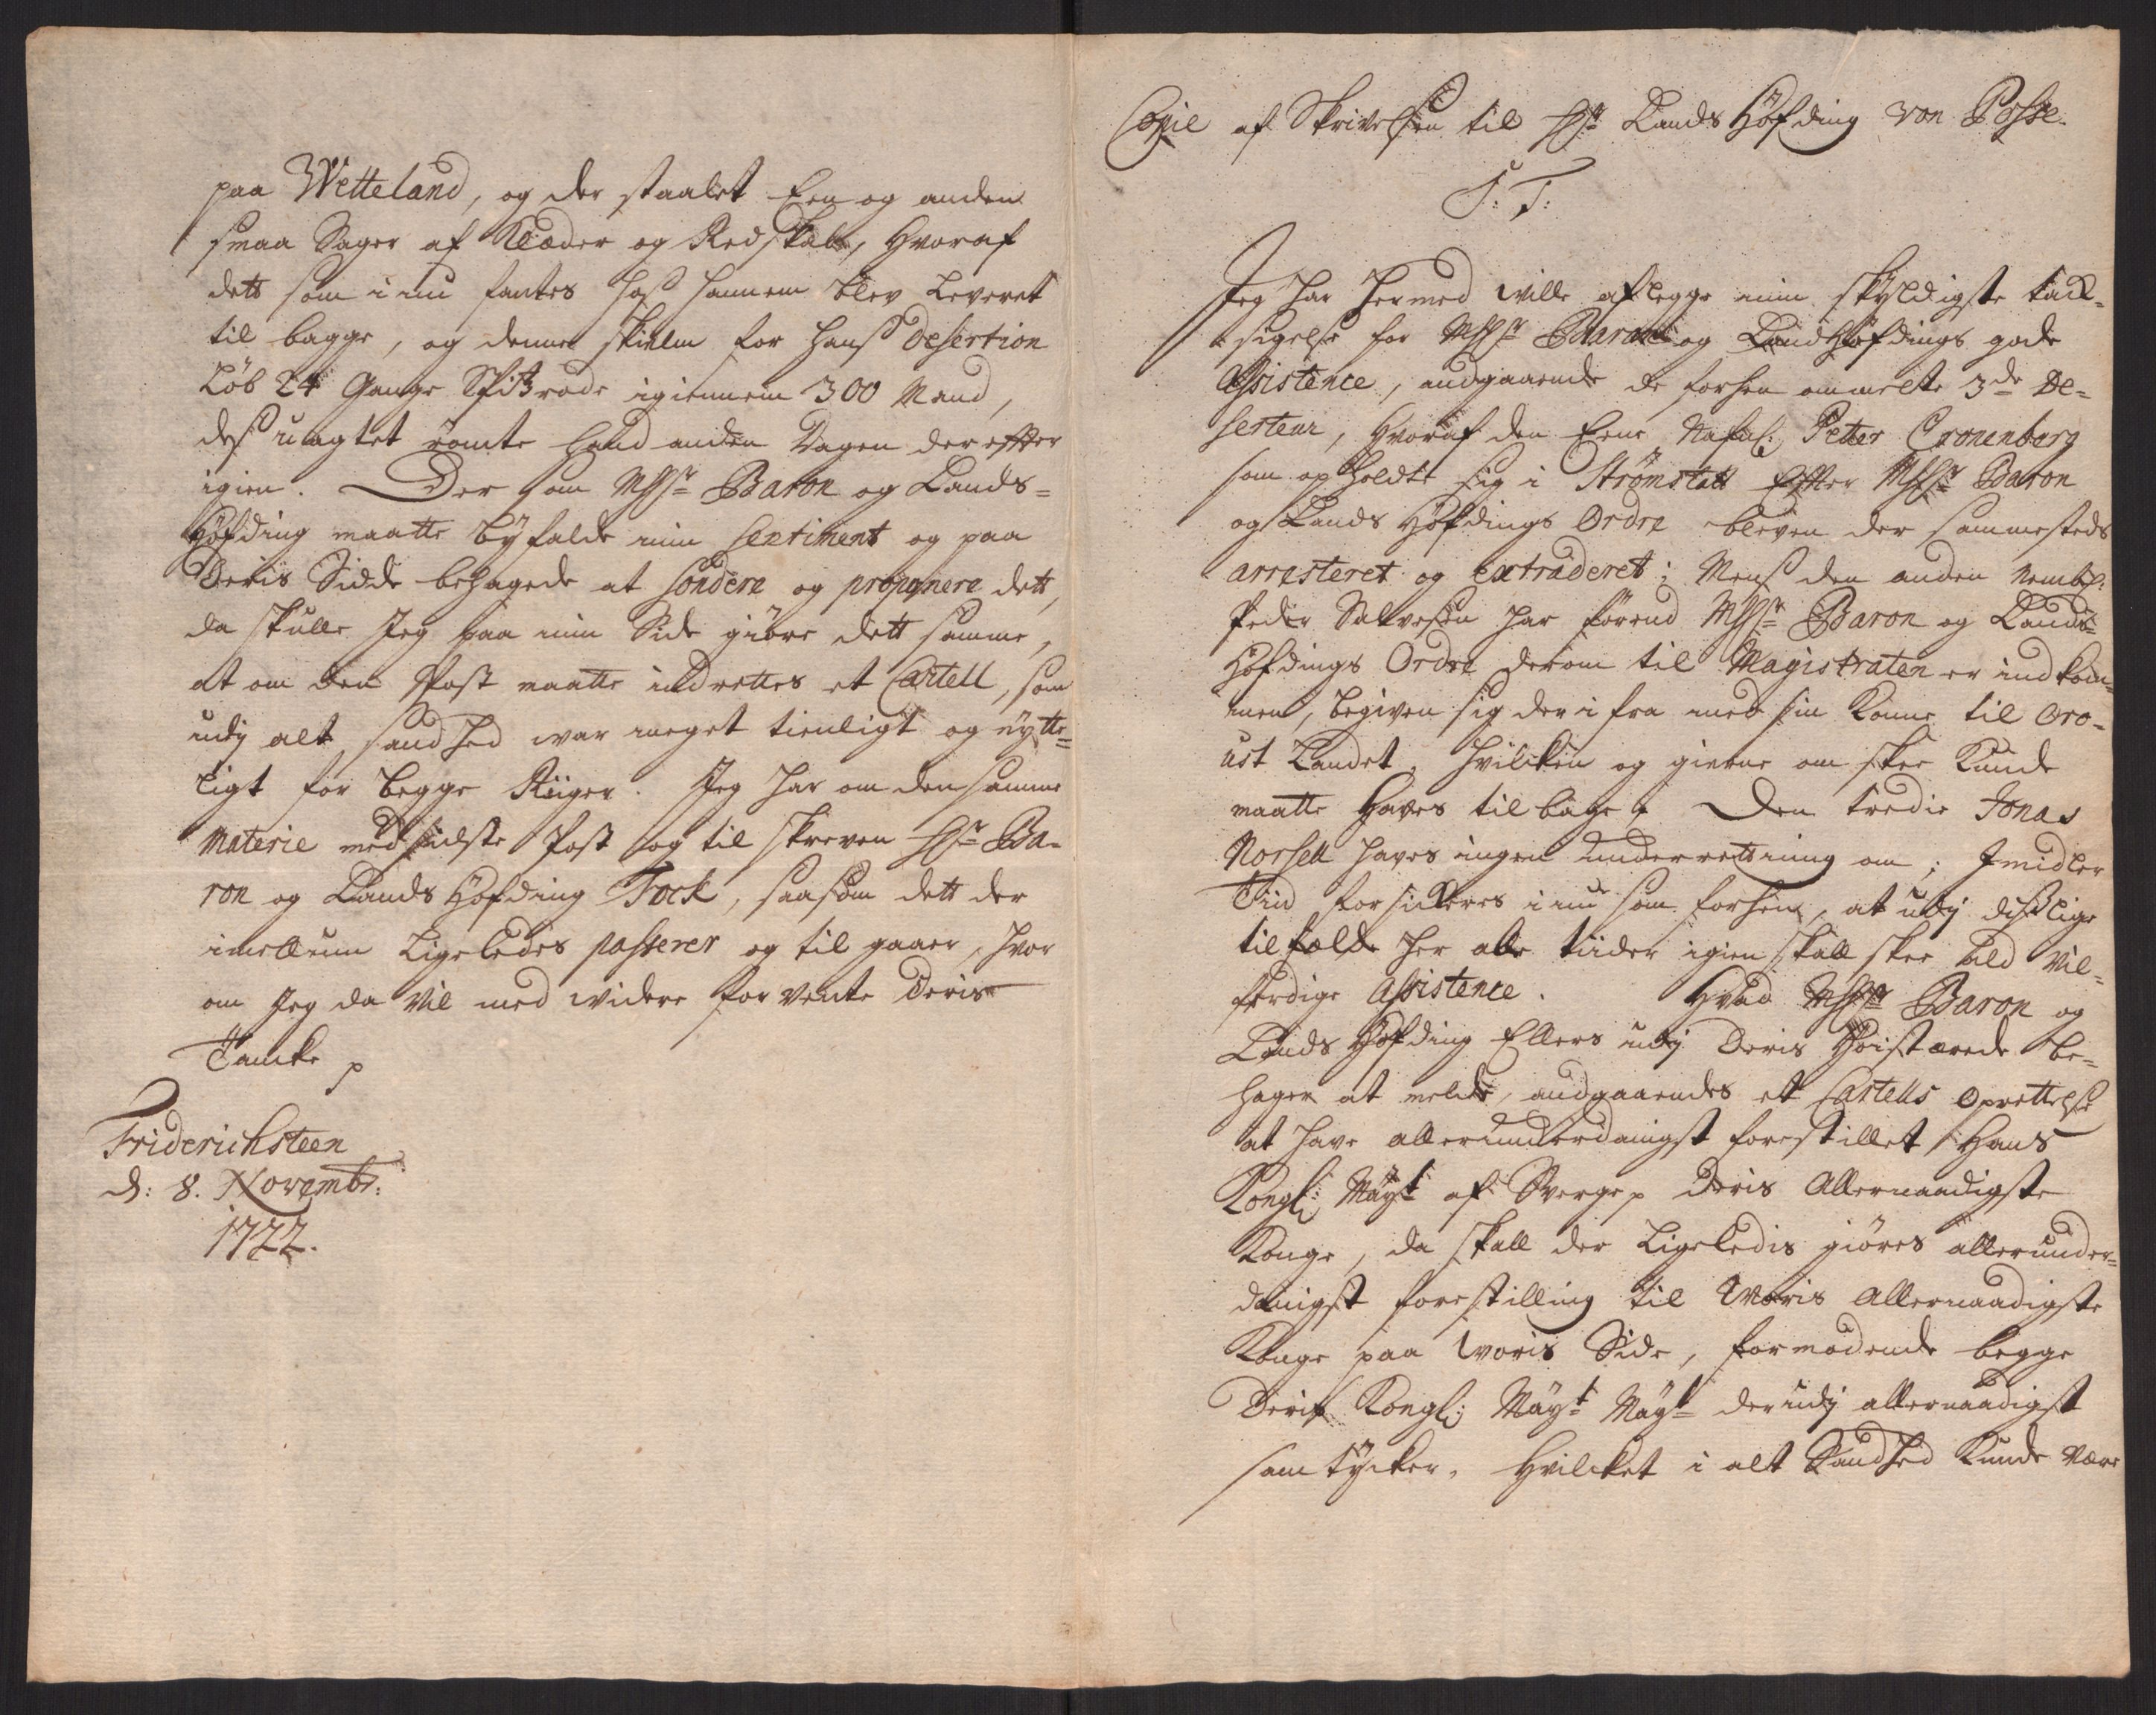 paa Wetteland, og der staalet Een og anden
smaa Sager af Klæder og Redskab, hvoraf
dett som i nu fantes hos hannem blev Leveret
til bagge, og denne skielm for hans Desertion
Løb 24 Gange Spitzrode igiennem 300 Mand,
des uagtet römte hand anden Dagen der effter
igien. Der som MHr Baron og Lands-
Höfding maatte byfalde min sentiment og paa
Deris Sidde behagede at sondere og propognere dett,
da skulle Jeg paa min Side giöre dett samme,
at om den Post maatte indrettes et Cartell, som
udj alt sandhed war meget tienligt og nytte-
ligt for begge Riiger. Jeg har om den samme
Materie med sidste Post og til skreven Hr Ba-
ron og Lands Höfding Fock, saasom dett der
imellum Ligeledes passerer og til gaaer, hvor
om Jeg da vil med widere for vente Deris
Tancke p
Friderichsteen
d: 8. Novembr:
1722.
Copie af Skrivelsen til Hr Lands Höfding von Posse.
S: T:
Jeg har hermed wille aflegge min skyldigste tack-
sigelse for MHr Baron og Landhöfdings gode
Assistence, andgaaende de forhen ommelte 3de De-
serteur, hvoraf den Eene Nafnl: Petter Cronenberg
som opholdte sig i Strömstatt Effter MHr Baron
og Lands Höfdings Ordre bleven der sammesteds
arresteret og extraderet; Mens den anden Nembl:
Peder Salvesen har förend MHr Baron og Lands-
Höfdings Ordre derom til Magistraten er indkom-
men, begiven sig der i fra med sin Konne til Oro-
ust Landet, hvilcken og gierne om skee kunde
maatte haves tilbage. Den tredie Jonas
Norsell haves ingen underrettning om; Imidler
Tiid forsickeres i nu som forhen, at udj disslige
tilfælde her alle tiider igien skall skee all vil-
færdige Assistence. Hvad MHr Baron og
Lands Höfding Ellers udj Deris Höistærede be-
hager at melde, andgaaendes et Cartells oprettelse
at have allerunderdanigst forestillet Hans
Kongl: Mayt af Sverge p Deris Allernaadigste
Konge, da skall der Ligeledis giöres allerunder-
danigst forestilling til Woris Allernaadigste
Konge paa woris Side, formodende begge
Deris Kongl: Mayt Mayt derudj allernaadigst
samtycker, hvilcket i alt Sandhed kunde være